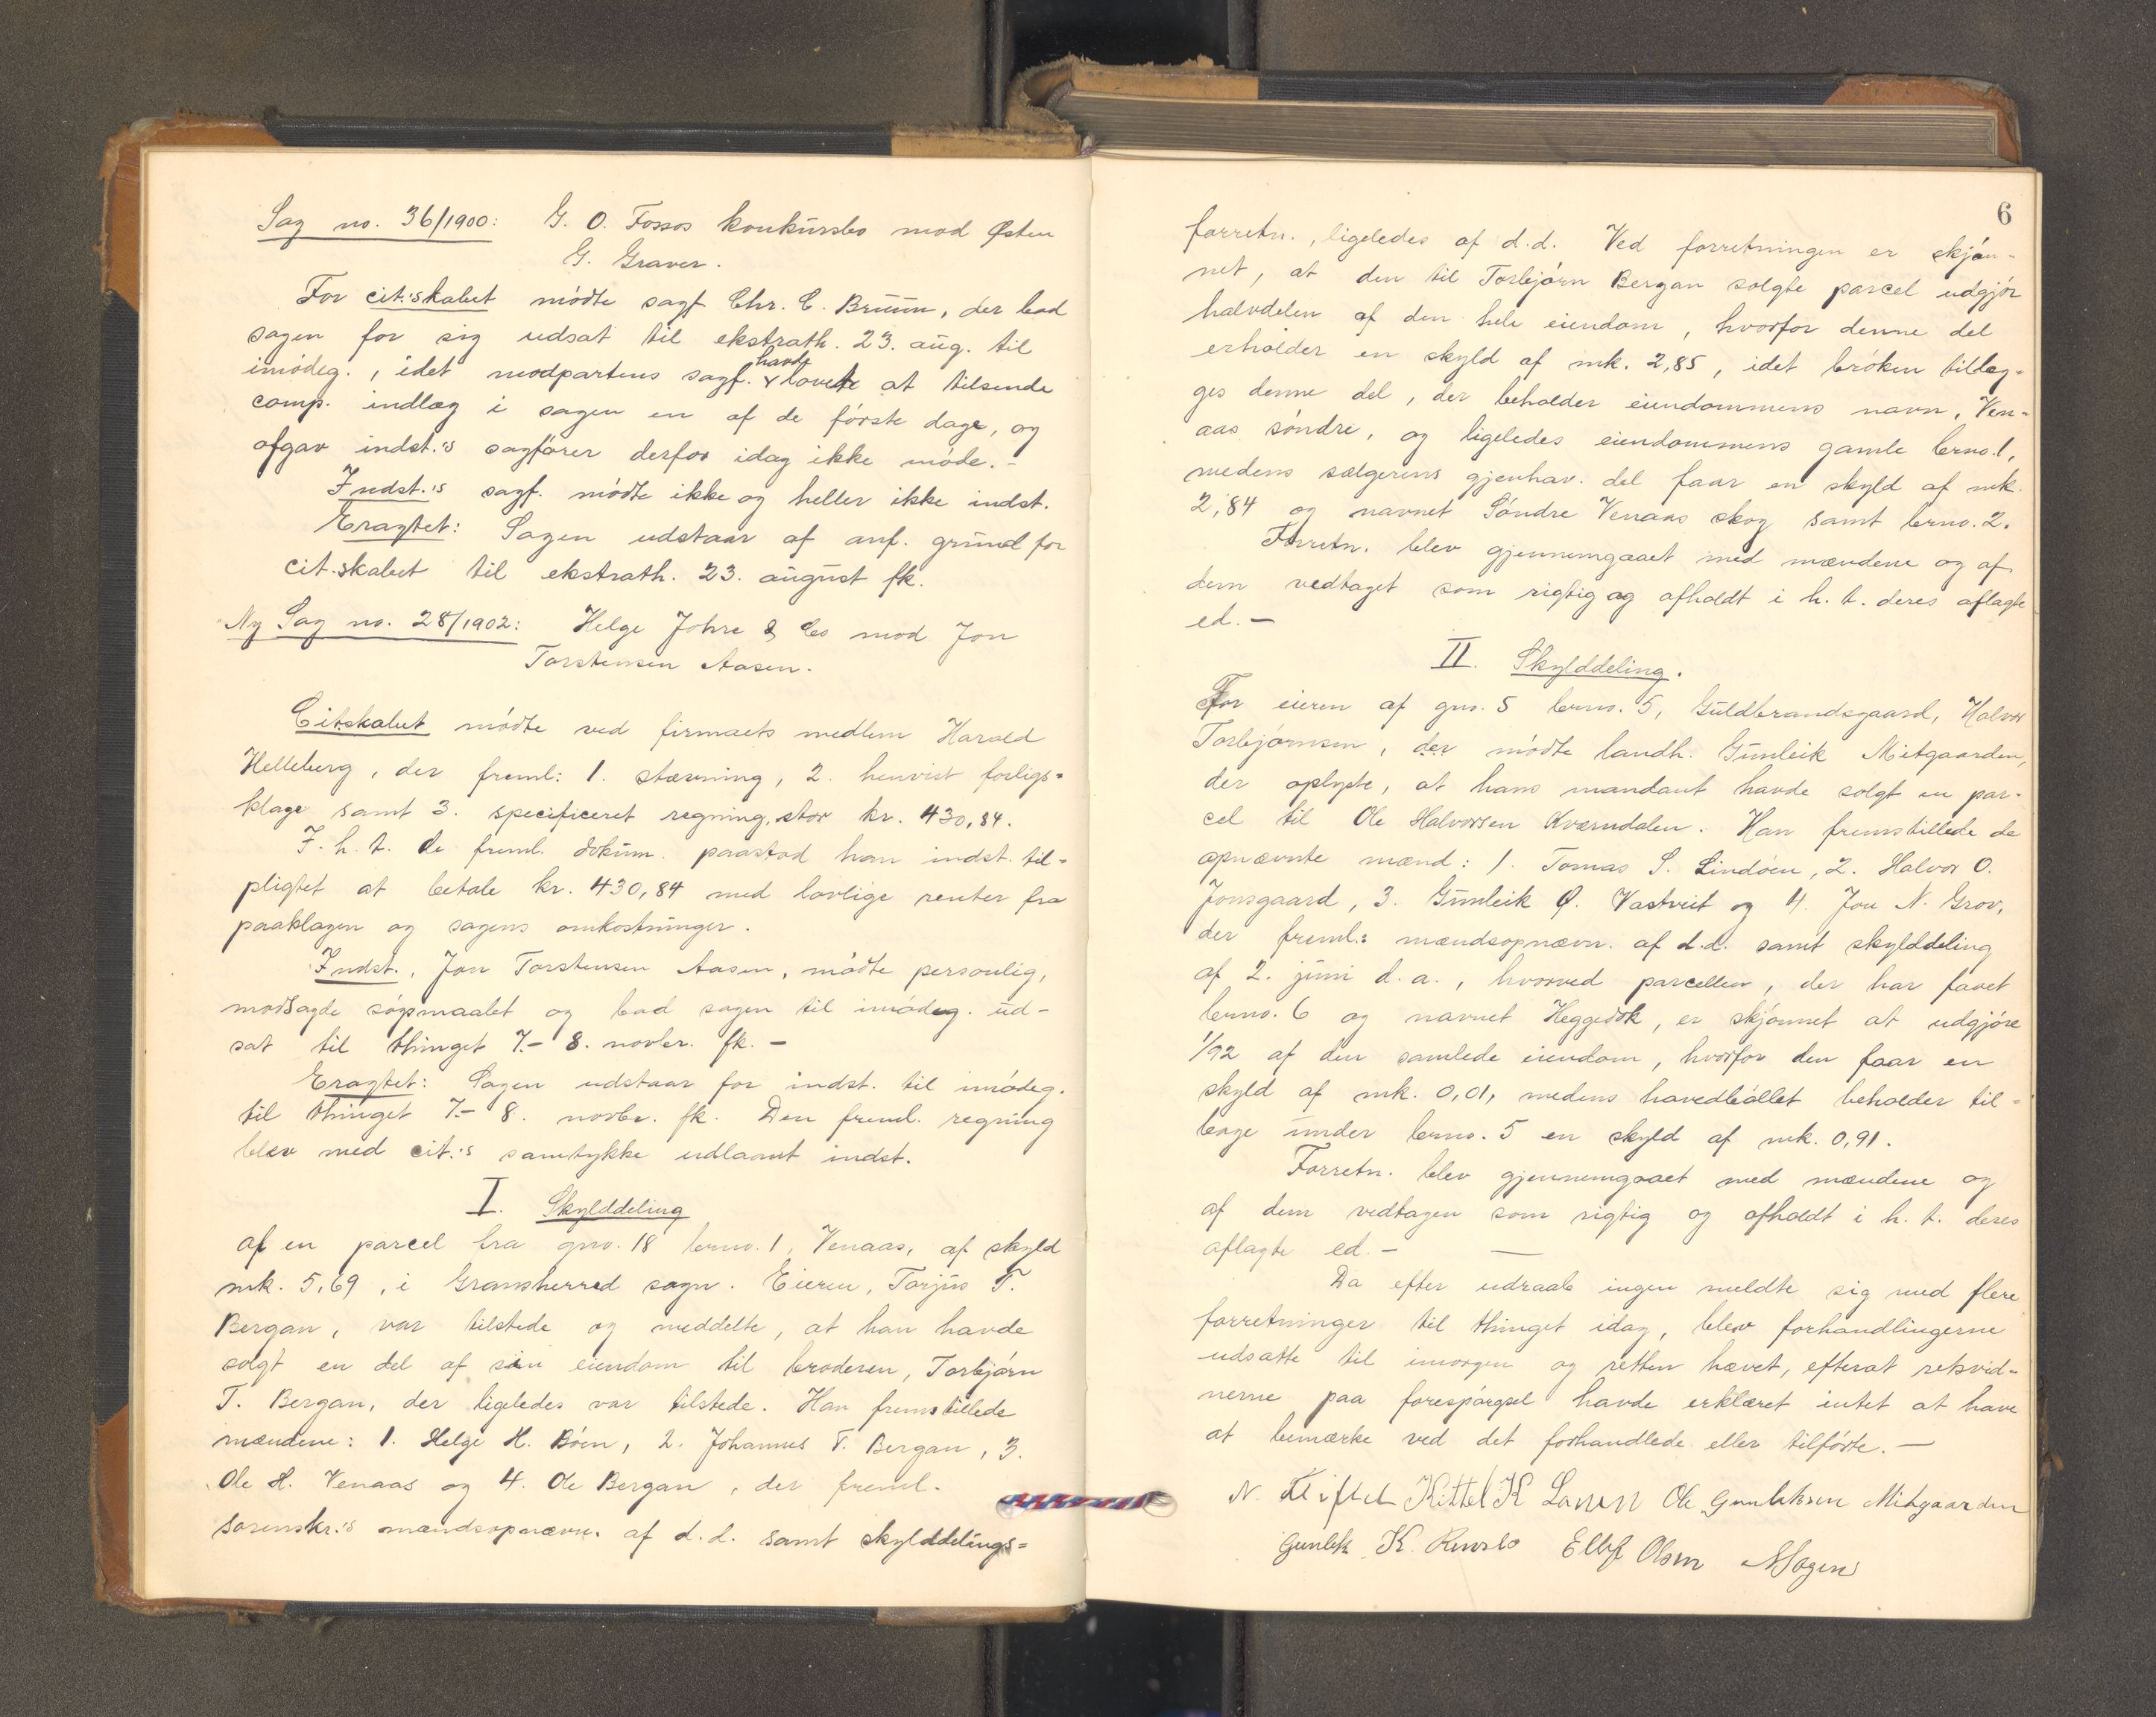 Sag no. 36/1900: G. O. Fossos konkursbo mod Østen
G. Graver.
For cit:skabet mödte sagf. Chr. C. Bruun, der bad
sagen for sig udsat til ekstrath. 23. aug. til
imödeg., idet modpartens sagf. havde lovet at tilsende
comp. indlæg i sagen en af de förste dage, og
afgav indst.'s sagförer derfor idag ikke möde.-
Indst.'s sagf. mödte ikke og heller ikke indst.
Eragtet: Sagen udstaar af anf. grund for
cit.skabet til ekstrath. 23. august fk.
Ny Sag no. 28/1902: Helge Johre & Co mod Jon
Torstensen Aasen.
Citskabet mödte ved firmaets medlem Harald
Helleberg, der freml: 1. stævning, 2. henvist forligs=
klage samt 3. specificeret regning, stor kr. 430,84.
I. h. t. de freml. dokum. paastod han indst. til=
pligtet at betale kr. 430,84 med lovlige renter fra
paaklagen og sagens omkostninger.
Indst., Jon Torstensen Aasen, mödte personlig,
modsagde sögsmaalet og bad sagen til imödeg. ud-
sat til thinget 7.- 8. novbr. fk. -
Eragtet: Sagen udstaar for indst. til imödeg.
til thinget 7.- 8. novbr. fk. Den freml. regning
blev med cit.'s samtykke udlaant indst.
I. Skylddeling
af en parcel fra gno. 18 brno. 1, Venaas, af skyld
mk. 5,69, i Gransherred sogn. Eieren, Torjus T.
Bergan, var tilstede og meddelte, at han havde
solgt en del af sin eiendom til broderen, Torbjörn
T. Bergan, der ligeledes var tilstede. Han fremstillede
mændene: 1. Helge H. Böen, 2. Johannes T. Bergan, 3.
Ole H. Venaas og 4. Ole Bergan, der freml.
sorenskr.'s mændsopnævn. af d.d. samt skylddelings=
6
forretn., ligeledes af d.d. Ved forretningen er skjön-
net, at den til Torbjörn Bergan solgte parcel udgjör
halvdelen af den hele eiendom, hvorfor denne del
erholder en skyld af mk. 2,85, idet bröken tillæg-
ges denne del, der beholder eiendommens navn, Ven-
aas söndre, og ligeledes eiendommens gamle brno. 1,
medens sælgerens gjenhav. del faar en skyld af mk.
2,84 og navnet Söndre Venaas skog samt brno. 2.
Forretn. blev gjennemgaaet med mændene og af
dem vedtaget som rigtig og afholdt i h. t. deres aflagte
ed. -
II. Skylddeling.
For eieren af gno. 5 brno. 5, Guldbrandsgaard, Halvor
Torbjörnsen, der mödte landh. Gunleik Mitgaarden,
der oplyste, at hans mandant havde solgt en par-
cel til Ole Halvorsen Kværndalen. Han fremstillede de
opnævnte mænd: 1. Tomas S. Lindöen, 2. Halvor O.
Jonsgaard, 3. Gunleik Ø. Vastveit og 4. Jon N. Grov,
der freml.: mændsopnævn. af d.d. samt skylddeling
af 2. juni d. a., hvorved parcellen, der har faaet
brno. 6 og navnet Heggedok, er skjönnet at udgjöre
1/92 af den samlede eiendom, hvorfor den faar en
skyld af mk. 0,01, medens hovedböllet beholder til-
bage under brno. 5 en skyld af mk. 0,91.
Forretn. blev gjennemgaaet med mændene og
af dem vedtagen som rigtig og afholdt i h. t. deres
aflagte ed. -
Da efter udraab ingen meldte sig med flere
forretninger til thinget idag, blev forhandlingerne
udsatte til imorgen og retten hævet, efterat retsvid-
nerne paa forespörgsel havde erklæret intet at have
at bemærke ved det forhandlede eller tilförte. -
N. Kittel K Lonen Ole Gunleiksen Mitgaarden
Gunleik K. Ellef Olsen